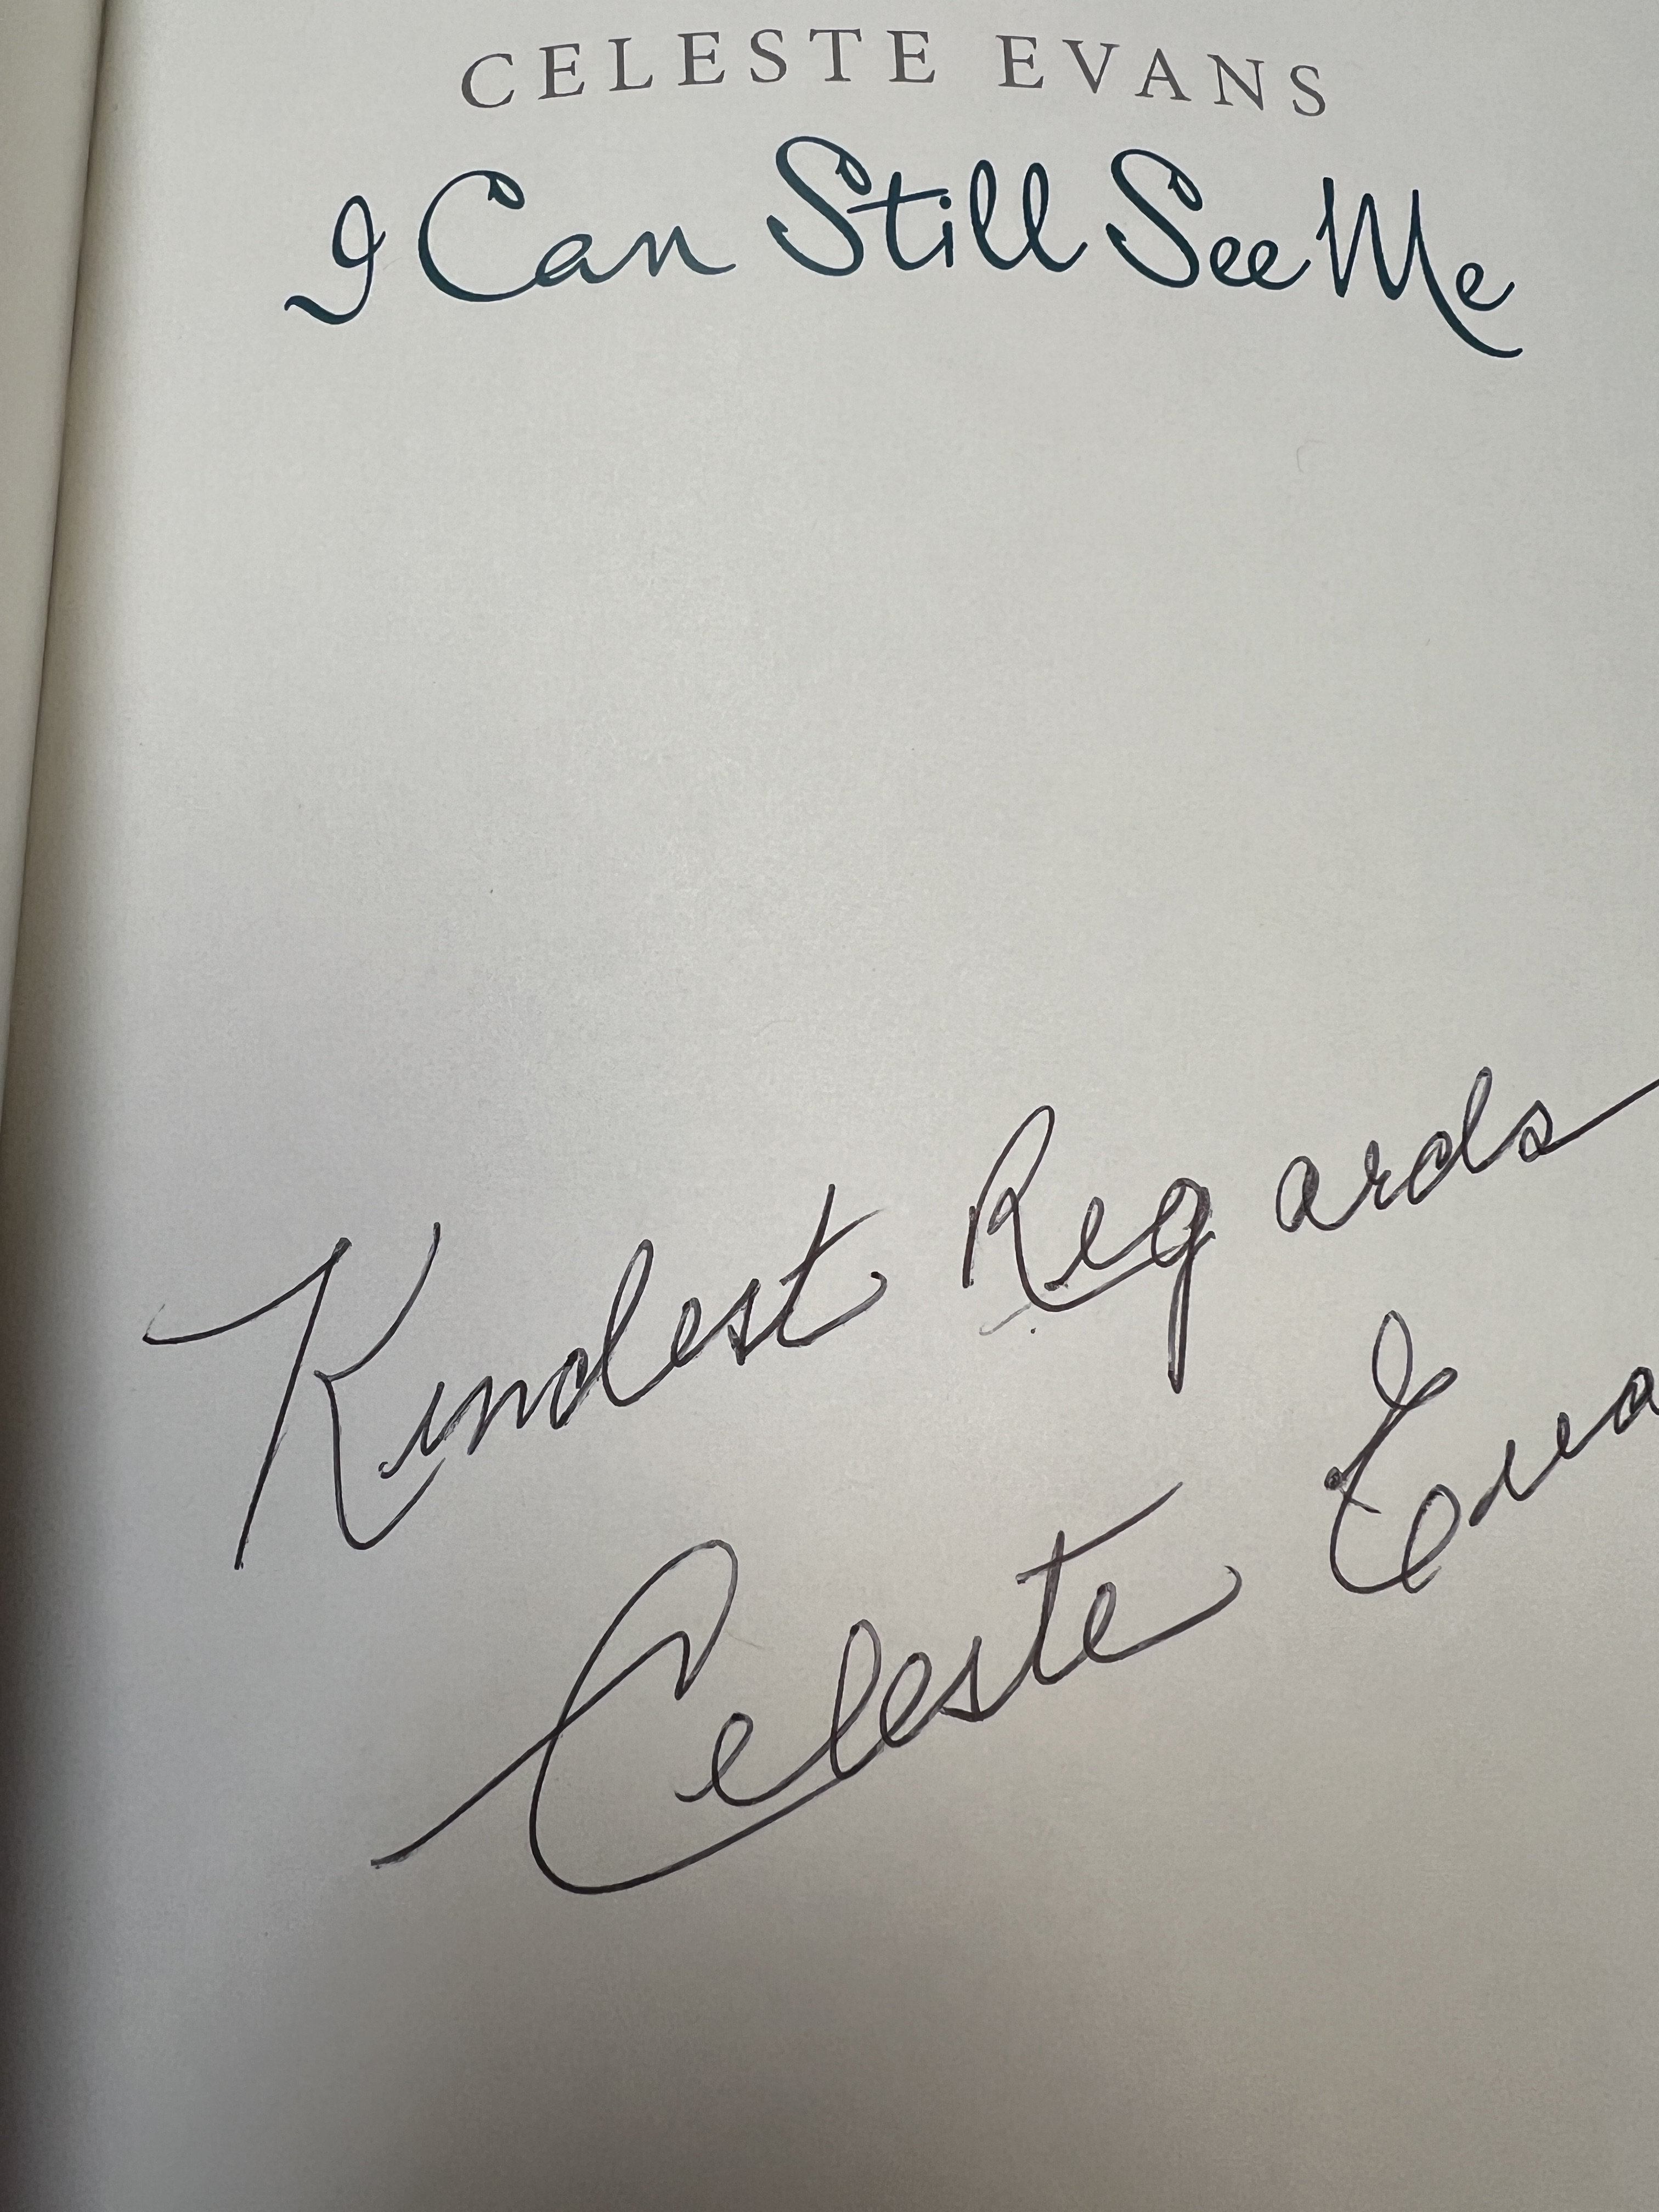 CELESTE EVANS
I Can Still See Me
Kindest Regards
Celeste Eva